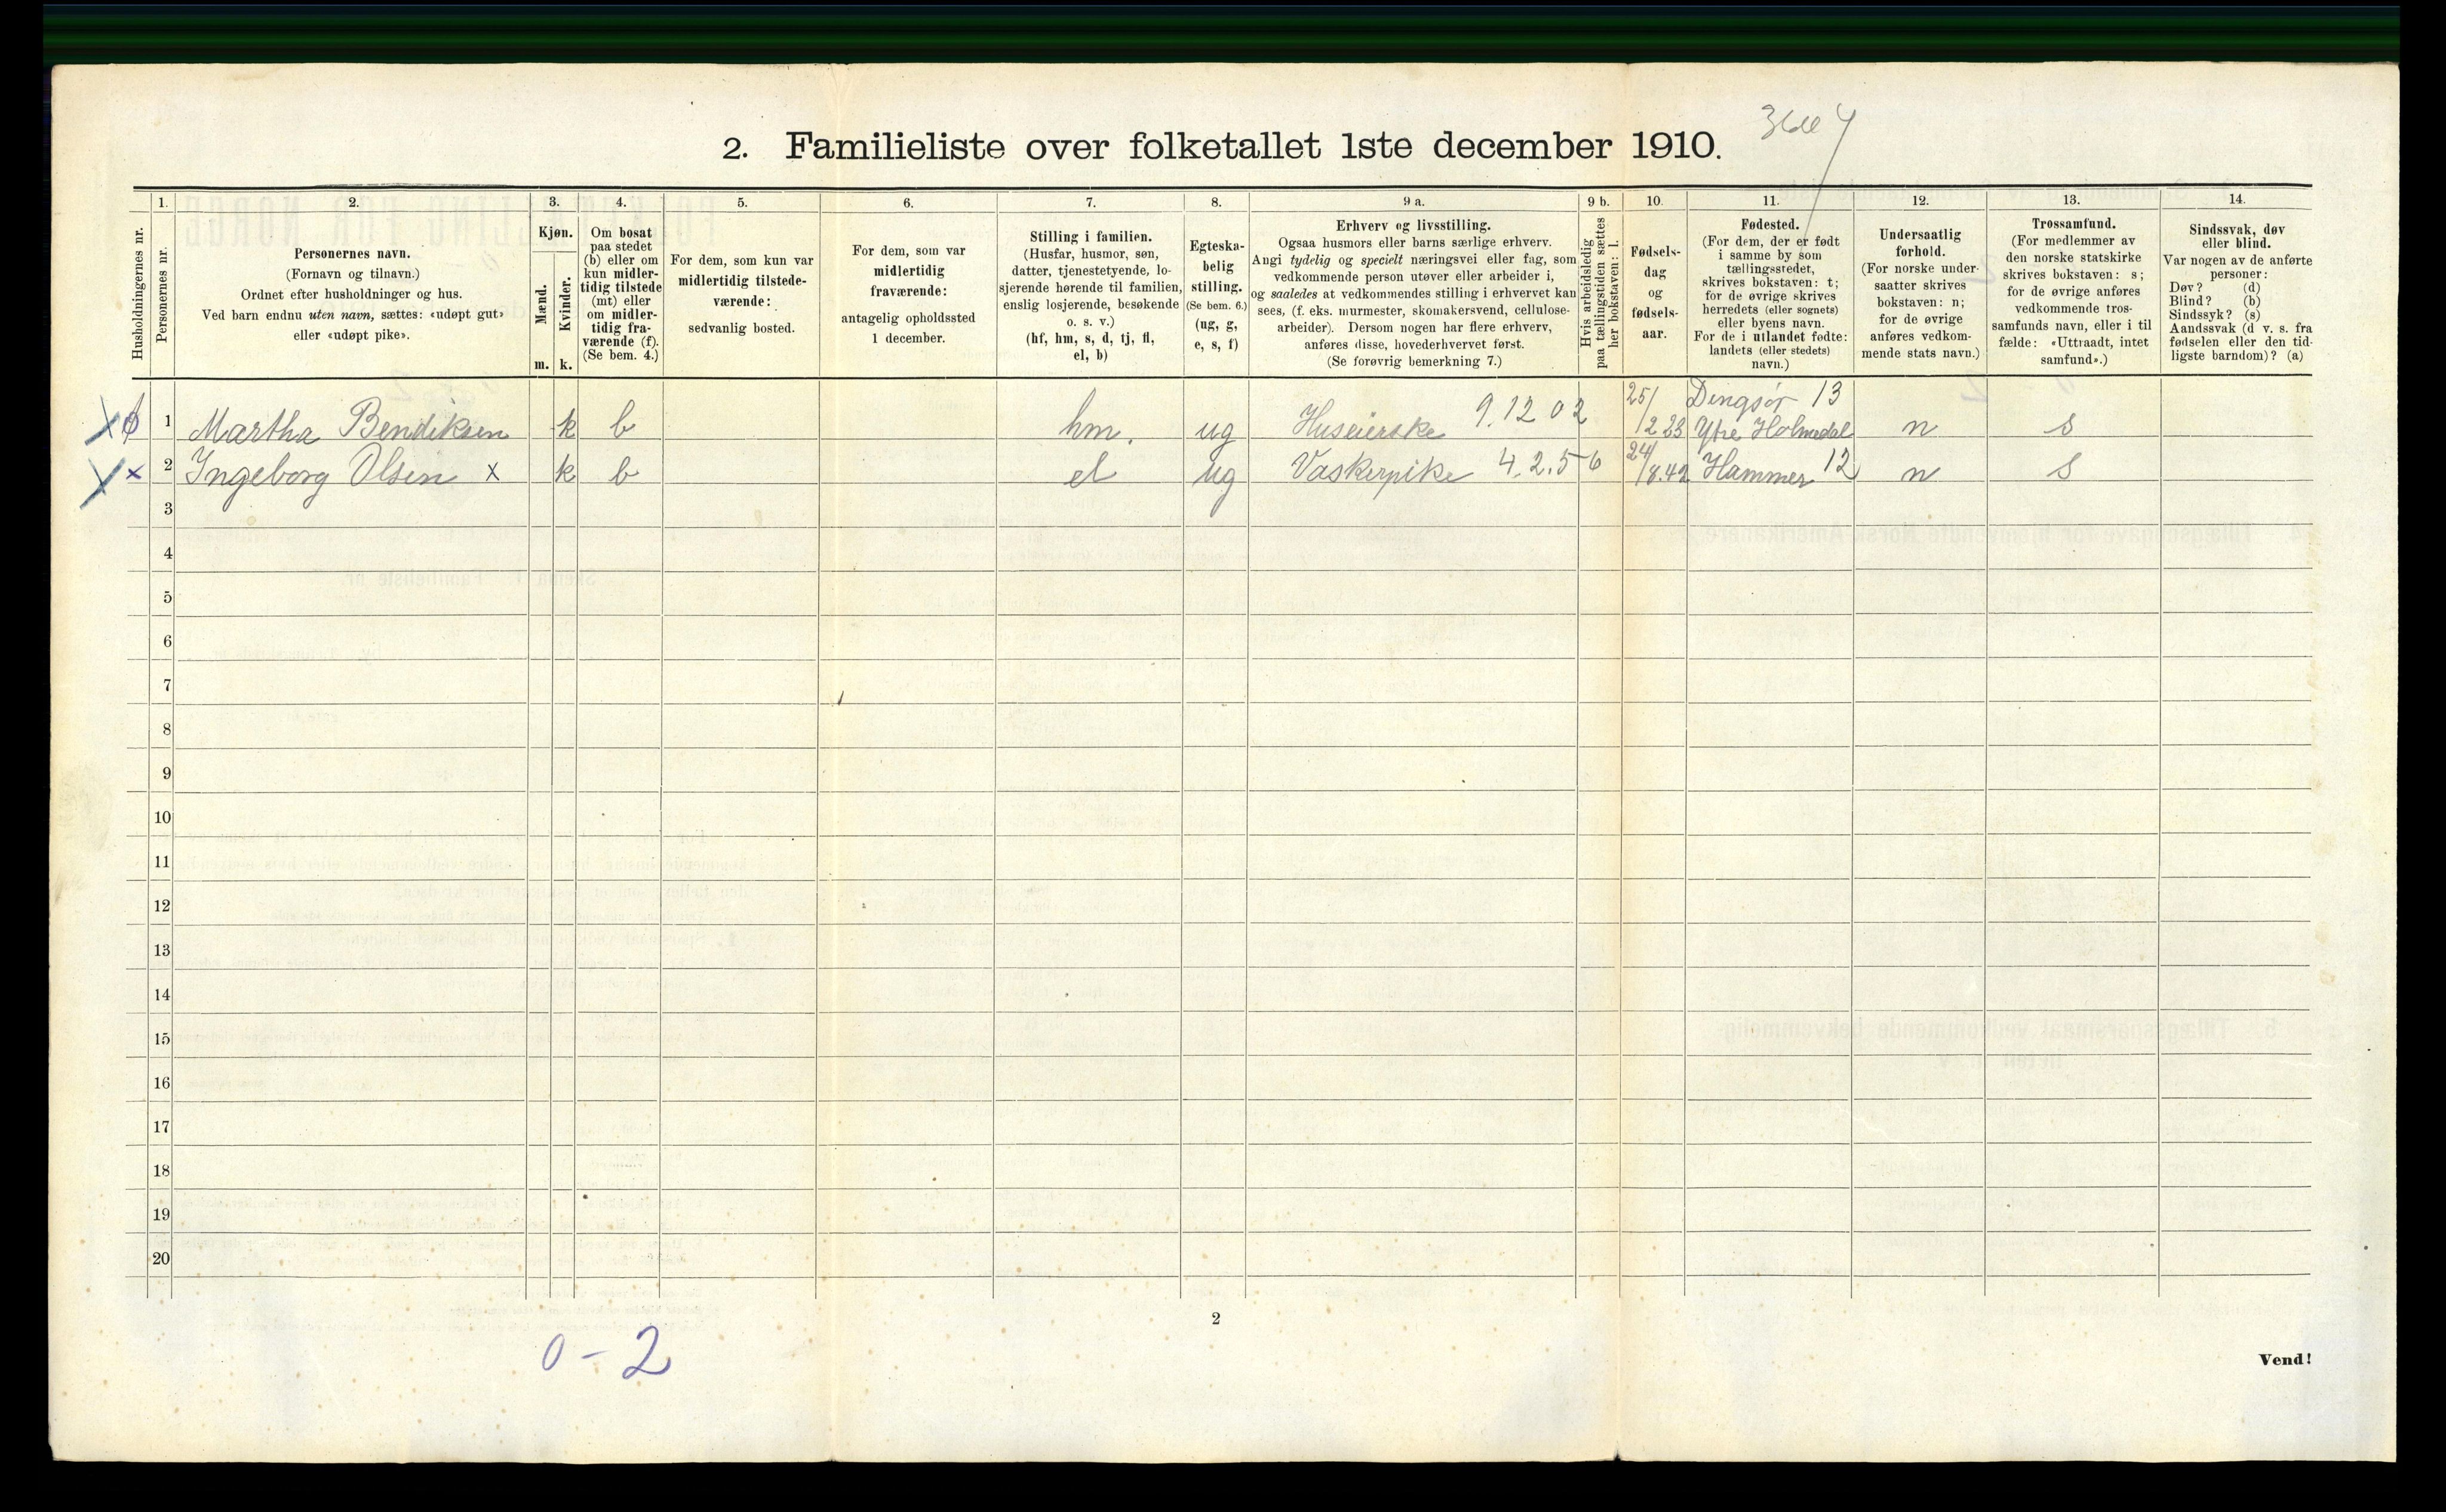 2. Familieliste over folketallet 1ste december 1910.
1. 2. 3. 4. 5. 6. 7. 8. 9 a. 9 b. 10. 11. 12. 13. 14.
Husholdningernes nr.
Personernes nr.
Personernes navn.
(Fornavn og tilnavn.)
Ordnet efter husholdninger og hus.
Ved barn endnu uten navn, sættes: «udøpt gut»
eller «udøpt pike».
Kjøn.
Mænd.
Kvinder.
m. k.
Om bosat
paa stedet
(b) eller om
kun midler-
tidig tilstede
(mt) eller
om midler-
tidig fra-
værende (f).
(Se bem. 4.)
For dem, som kun var
midlertidig tilstede-
værende:
sedvanlig bosted.
For dem, som var
midlertidig
fraværende:
antagelig opholdssted
1 december.
Stilling i familien.
(Husfar, husmor, søn,
datter, tjenestetyende, lo-
sjerende hørende til familien,
enslig losjerende, besøkende
o. s. v.)
(hf, hm, s, d, tj, fl,
el, b)
Egteska-
belig
stilling.
(Se bem. 6.)
(ug, g,
e, s, f)
Erhverv og livsstilling.
Ogsaa husmors eller barns særlige erhverv.
Angi tydelig og specielt næringsvei eller fag, som
vedkommende person utøver eller arbeider i,
og saaledes at vedkommendes stilling i erhvervet kan
sees, (f. eks. murmester, skomakersvend, cellulose-
arbeider). Dersom nogen har flere erhverv,
anføres disse, hovederhvervet først.
(Se forøvrig bemerkning 7.)
Hvis arbeidsledig
paa tællingstiden sættes
her bokstaven: l.
Fødsels-
dag
og
fødsels-
aar.
Fødested.
(For dem, der er født
i samme by som
tællingsstedet,
skrives bokstaven: t;
for de øvrige skrives
herredets (eller sognets)
eller byens navn.
For de i utlandet fødte:
landets (eller stedets)
navn.)
Undersaatlig
forhold.
(For norske under-
saatter skrives
bokstaven: n;
for de øvrige
anføres vedkom-
mende stats navn.)
Trossamfund.
(For medlemmer av
den norske statskirke
skrives bokstaven: s;
for de øvrige anføres
vedkommende tros-
samfunds navn, eller i til
fælde: «Uttraadt, intet
samfund».)
Sindssvak, døv
eller blind.
Var nogen av de anførte
personer:
Døv? (d)
Blind? (b)
Sindssyk? (s)
Aandssvak (d v. s. fra
fødselen eller den tid-
ligste barndom)? (a)
1 Martha Bendiksen k b hm. ug Huseierske 9.12 02 25/12 23 Dingsør 13 Ytre Holmedal n s
x 2 Ingeborg Olsen x k b el ug Vaskerpike 4.2.56 24/8.42 Hammer 12 n s
3
4
5
6
7
8
9
10
11
12
13
14
15
16
17
18
19
20
2
0 - 2
Vend!